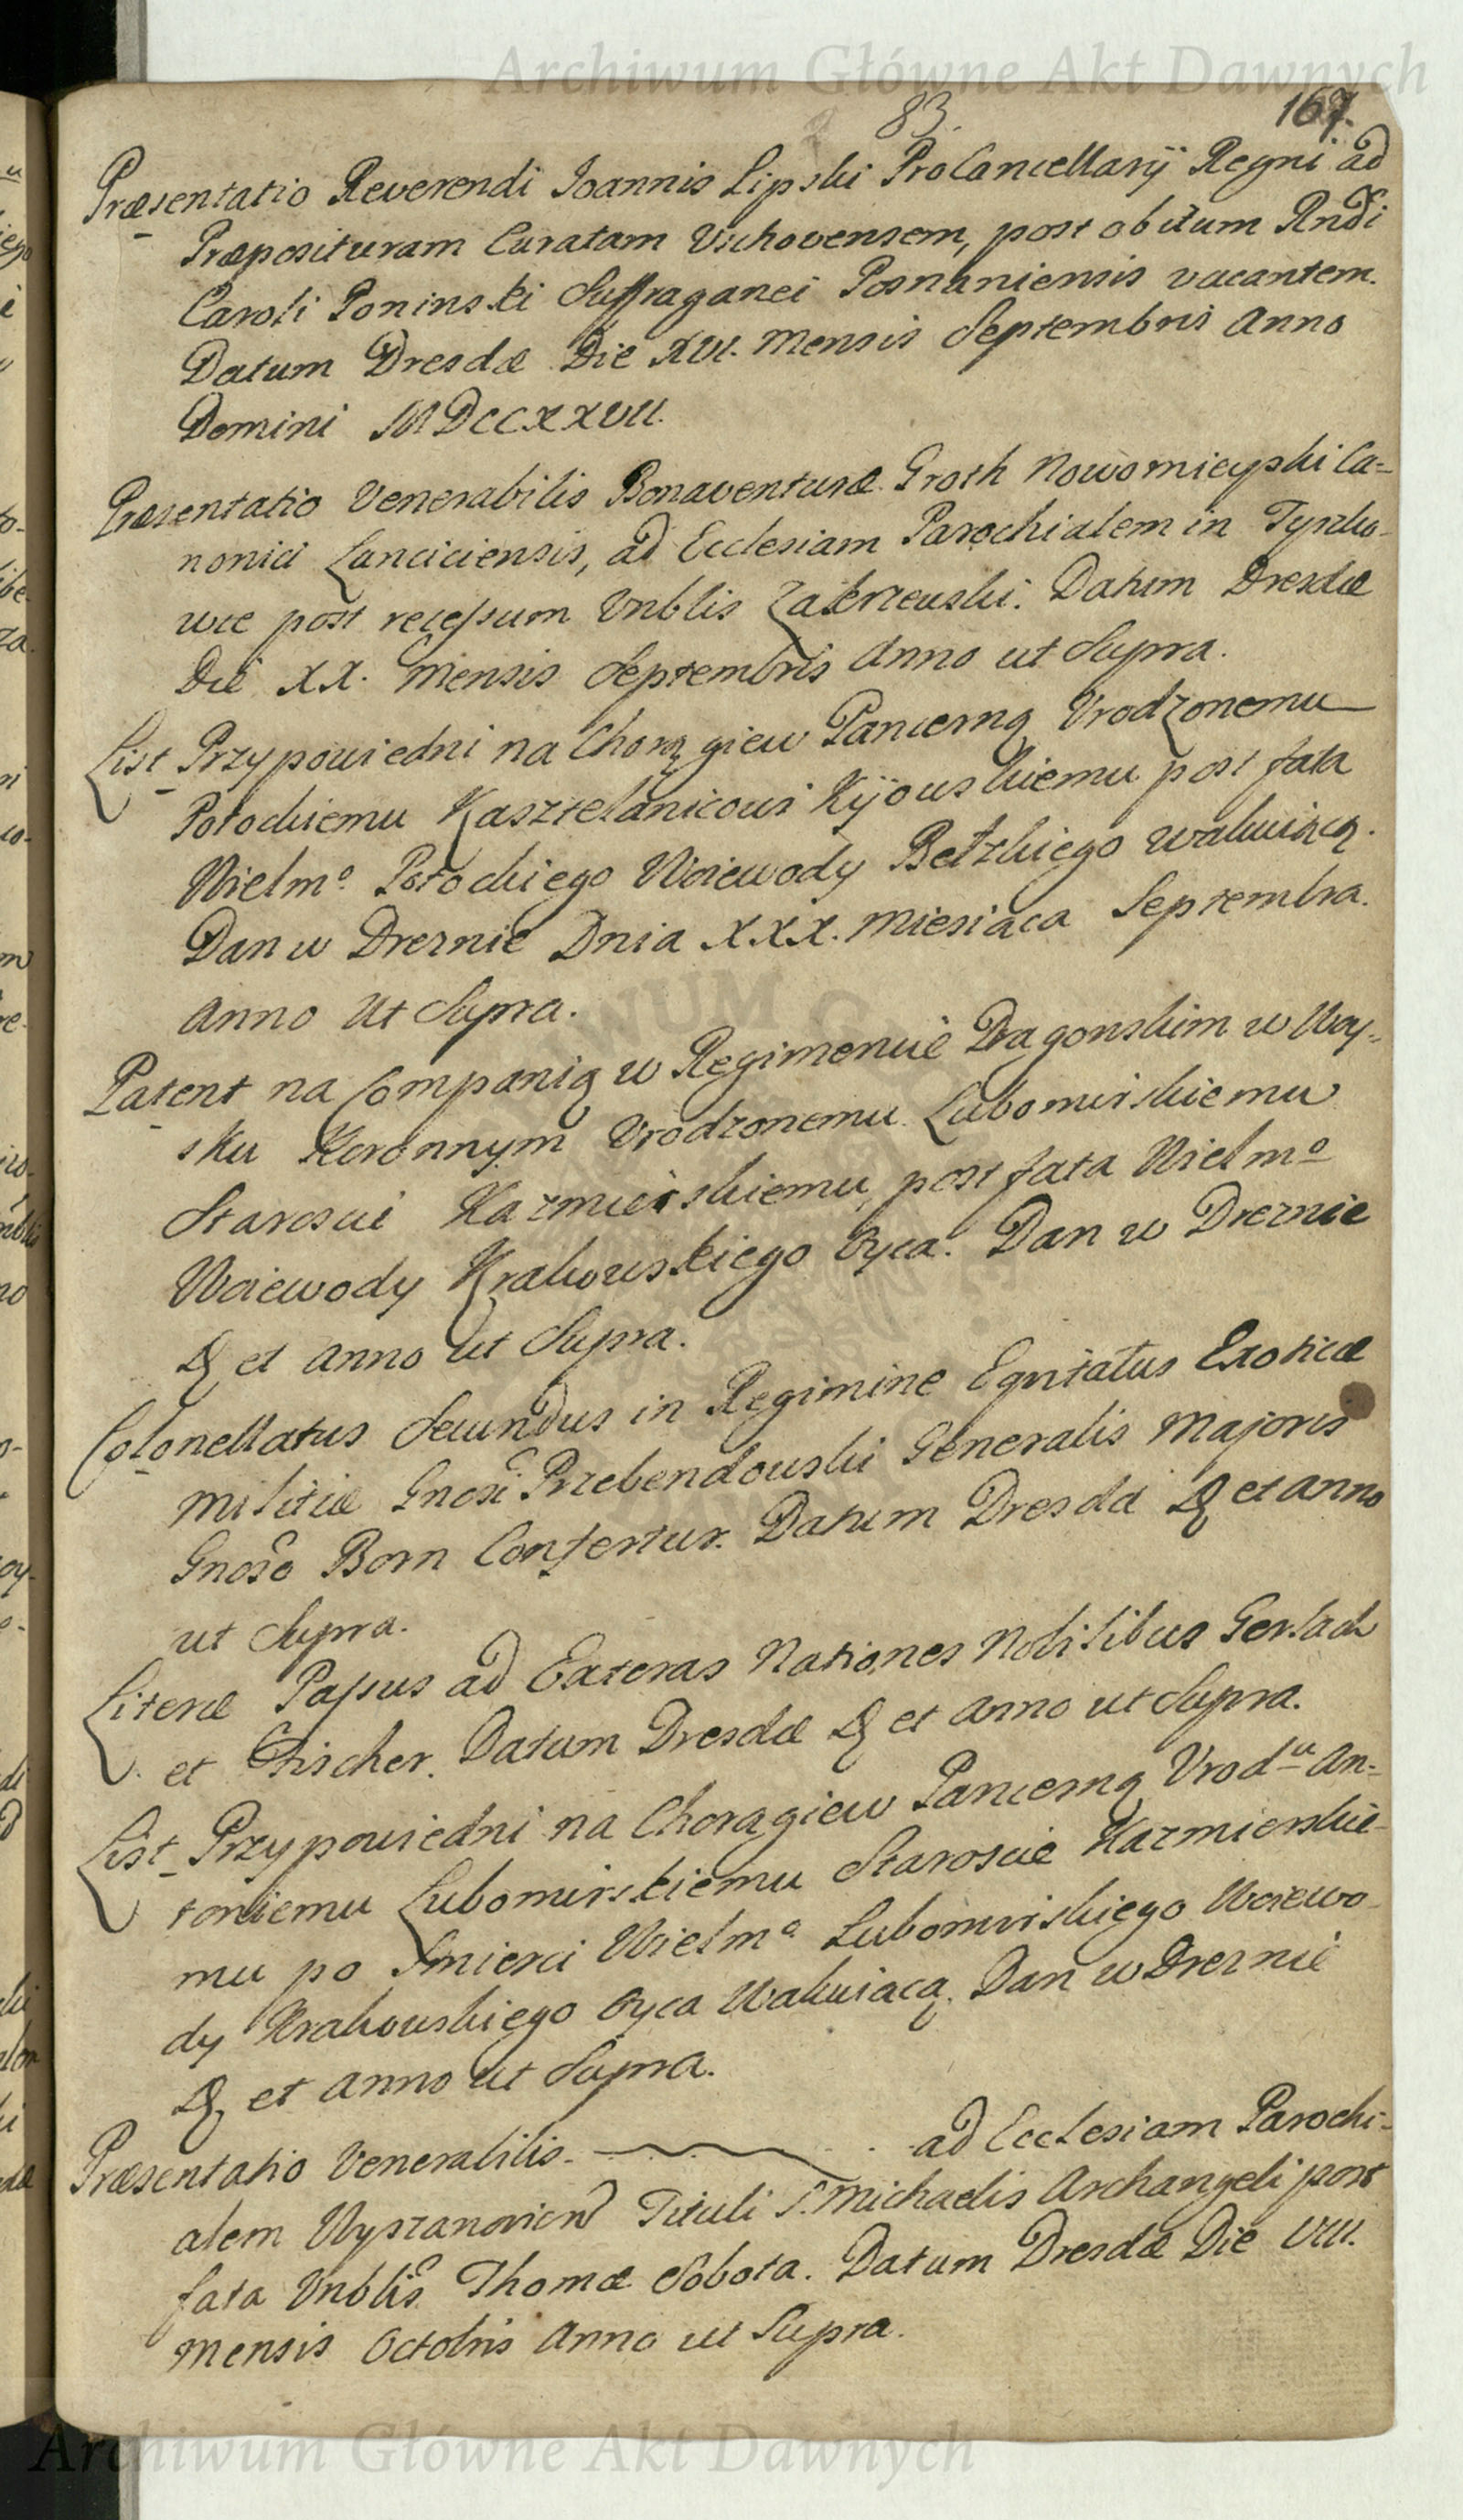 Archiwum Główne Akt Dawnych
83. 167.
Præsentatio Reverendi Joannis Lipski ProCancellarij Regni ad
Præposituram Curatam Vschovensem, post obitum Rndi
Caroli Poninski Suffraganei Posnaniensis vacantem.
Datum Dresdæ Die XVI. Mensis Septembris Anno
Domini MDCCXXVII.
Præsentatio Venerabilis Bonaventuræ Groth Nowomieyski Ca=
nonici Lanciciensis, ad Ecclesiam Parochialem in Tyszko-
wce post recessum Vnblis Zakrzewski. Datum Dresdæ
Die XX. Mensis Septembris Anno ut Supra.
List Przypowiedni na Chorągiew Pancerną Vrodzonemu
Potockiemu Kasztelanicowi Kijowskiemu post fata
Wielmo. Potockiego Woiewody Bełzkiego wakuiącą.
Dan w Dreznie Dnia XXX. Miesiaca Septembra.
Anno Ut Supra.
Patent na Companią w Regimencie Dragonskim w Woy=
sku Koronnym Vrodzonemu Lubomirskiemu
Starosci Kazmirskiemu, post fata Wielmo
Woiewody Krakowskiego Oyca. Dan w Dreznie
D et Anno ut Supra.
Colonellatus Secundus in Regimine Equitatus Exoticæ
Militiæ Gnosi Przebendowski Generalis Majoris
Gnoso Born Confertur. Datum Dresdæ D et Anno
ut Supra.
Literæ Passus ad Exteras Nationes Nobilibus Gerlach
et Fischer. Datum Dresdæ D et Anno ut Supra.
List Przypowiedni na Chorągiew Pancerną Vrodu An=
toniemu Lubomirskiemu Staroscie Kazmierskie-
mu po Smierci Wielmo Lubomirskiego Woiewo-
dy Krakowskiego Oyca Wakuiącą. Dan w Dreznie
D et Anno ut Supra.
Præsentatio Venerabilis ad Ecclesiam Parochi-
alem Tituli S. Michaelis Archangeli post
fata Vnblis Thomæ Sobota. Datum Dresdæ Die VIII.
Mensis Octobris Anno ut Supra.
Archiwum Główne Akt Dawnych